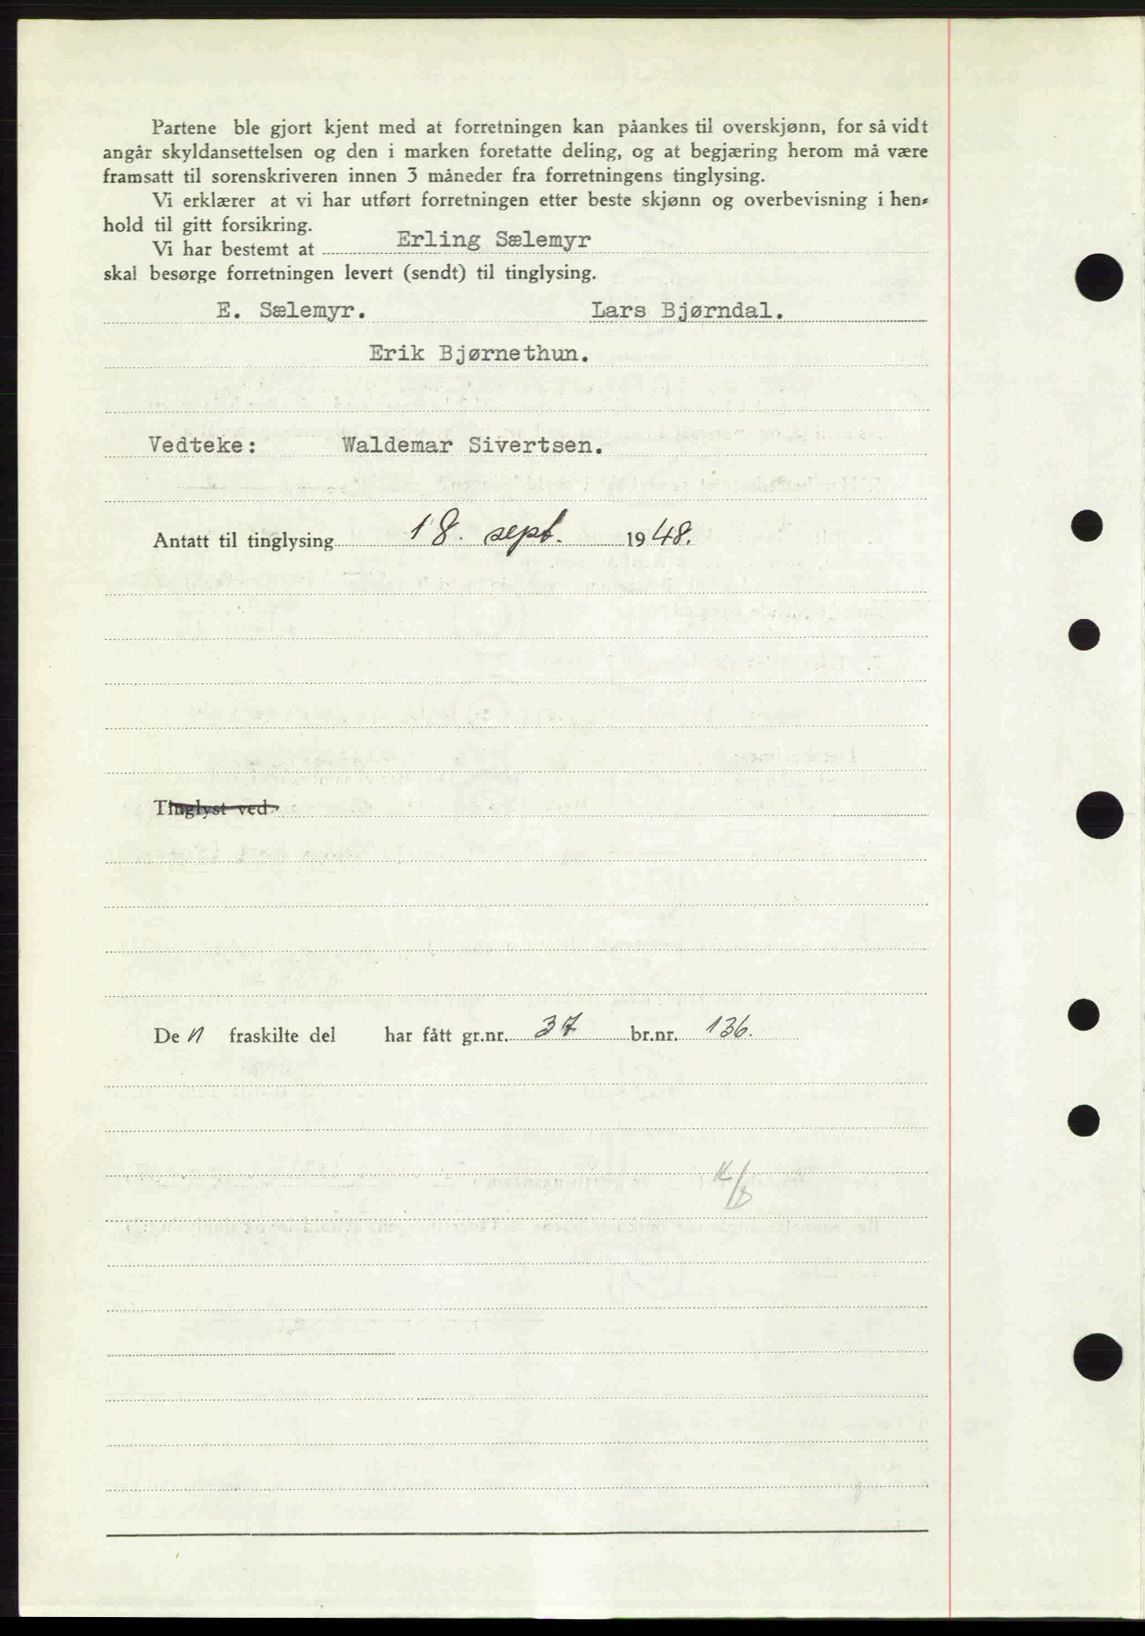 Partene ble gjort kjent med at forretningen kan påankes til overskjønn, for så vidt
angår skyldansettelsen og den i marken foretatte deling, og at begjæring herom må være
framsatt til sorenskriveren innen 3 måneder fra forretningens tinglysing.
Vi erklærer at vi har utført forretningen etter beste skjønn og overbevisning i hen-
hold til gitt forsikring.
Vi har bestemt at Erling Sælemyr
skal besørge forretningen levert (sendt) til tinglysing.
E. Sælemyr. Lars Bjørndal.
Erik Bjørnethun.
Vedteke: Waldemar Sivertsen.
Antatt til tinglysing 18. sept. 1948.
Tinglyst ved
De n fraskilte del har fått gr.nr. 37 br.nr. 136.